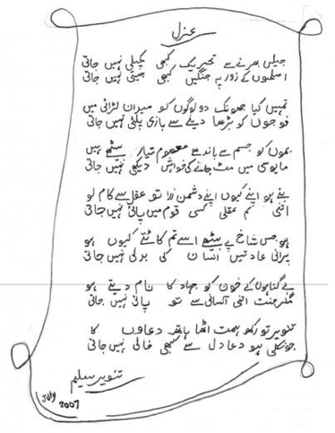 غزل
جیلیں بھرنے سے تحریک کبھی کچلی نہیں جاتی
اسلحوں کے زور پہ جنگیں کبھی جیتی نہیں جاتی
تمہیں کیا جھونک دو لوگوں کو میدان لڑائی میں
فوجوں کو بڑھا دینے سے بازی پلٹی نہیں جاتی
بموں کو جسم سے باندھے معصوم تیار بیٹھے ہیں
مایوسی میں مٹ جانے کی خواہش دیکھی نہیں جاتی
بنے ہو اپنے کیوں اپنے دشمن ذرا تو عقل سے کام لو
اتنی کم عقلی کسی قوم میں پائی نہیں جاتی
ہو جس شاخ پے بیٹھے اسے تم کاٹتے کیوں ہو
پرانی عادتیں انسان کی بدلی نہیں جاتی
بے گناہوں کے خون کو جہاد کا نام دیتے ہو
مگر جنت اتنی آسانی سے تو پائی نہیں جاتی
تنویر تو رکھ ہمت اٹھا ہاتھ دعاوں کا
جو نکلی ہو دعا دل سے کبھی خالی نہیں جاتی
تنویر سلیم
July
2007